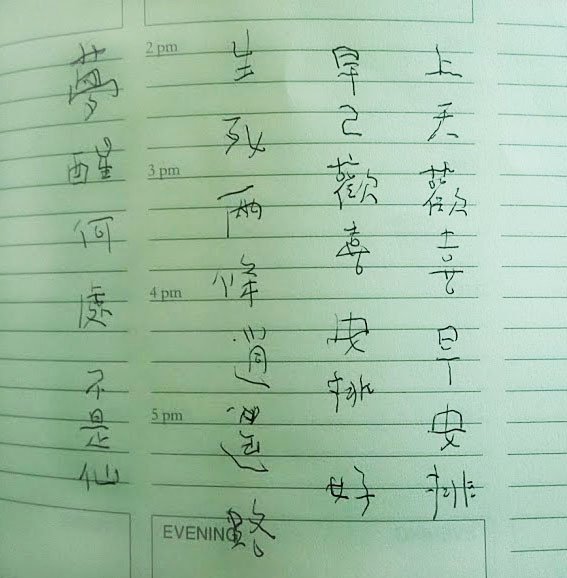 上天歡喜早安排
早已歡喜安排好
生死兩條逍遙路
夢醒何處不是仙
2 pm
3 pm
4 pm
5 pm
EVENING